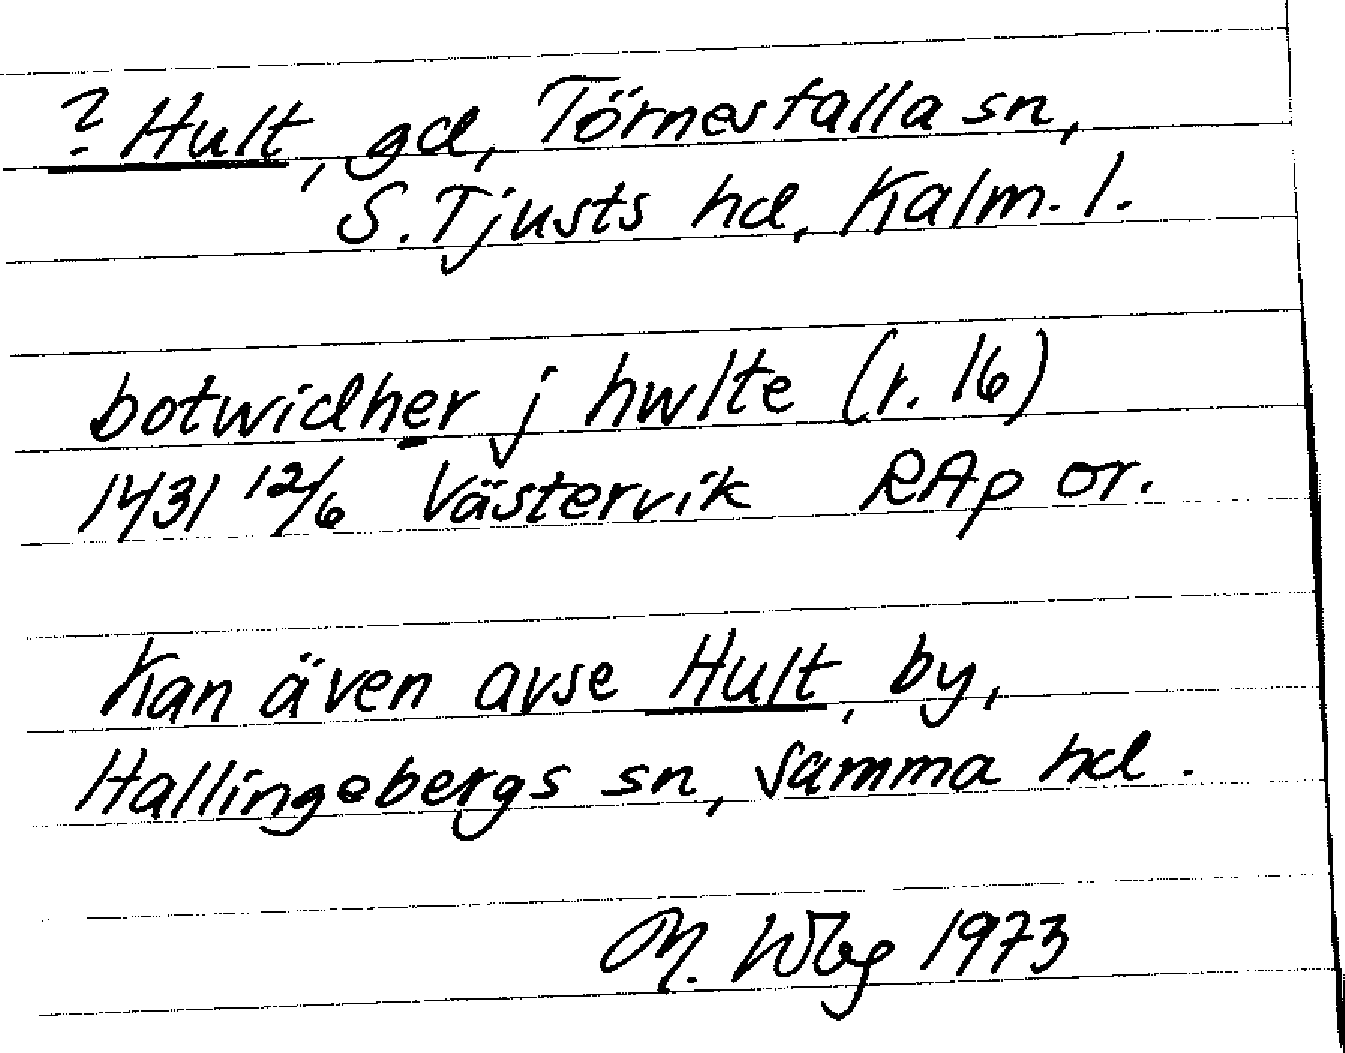 ? Hult, gd, Törnesfalla sn,
S. Tjusts hd, Kalm. l.
botwidher j hwlte (r. 16)
1431 12/6 Västervik RAp or.
Kan även avse Hult, by,
Hallingebergs sn, samma hd.
M. Wbg 1973